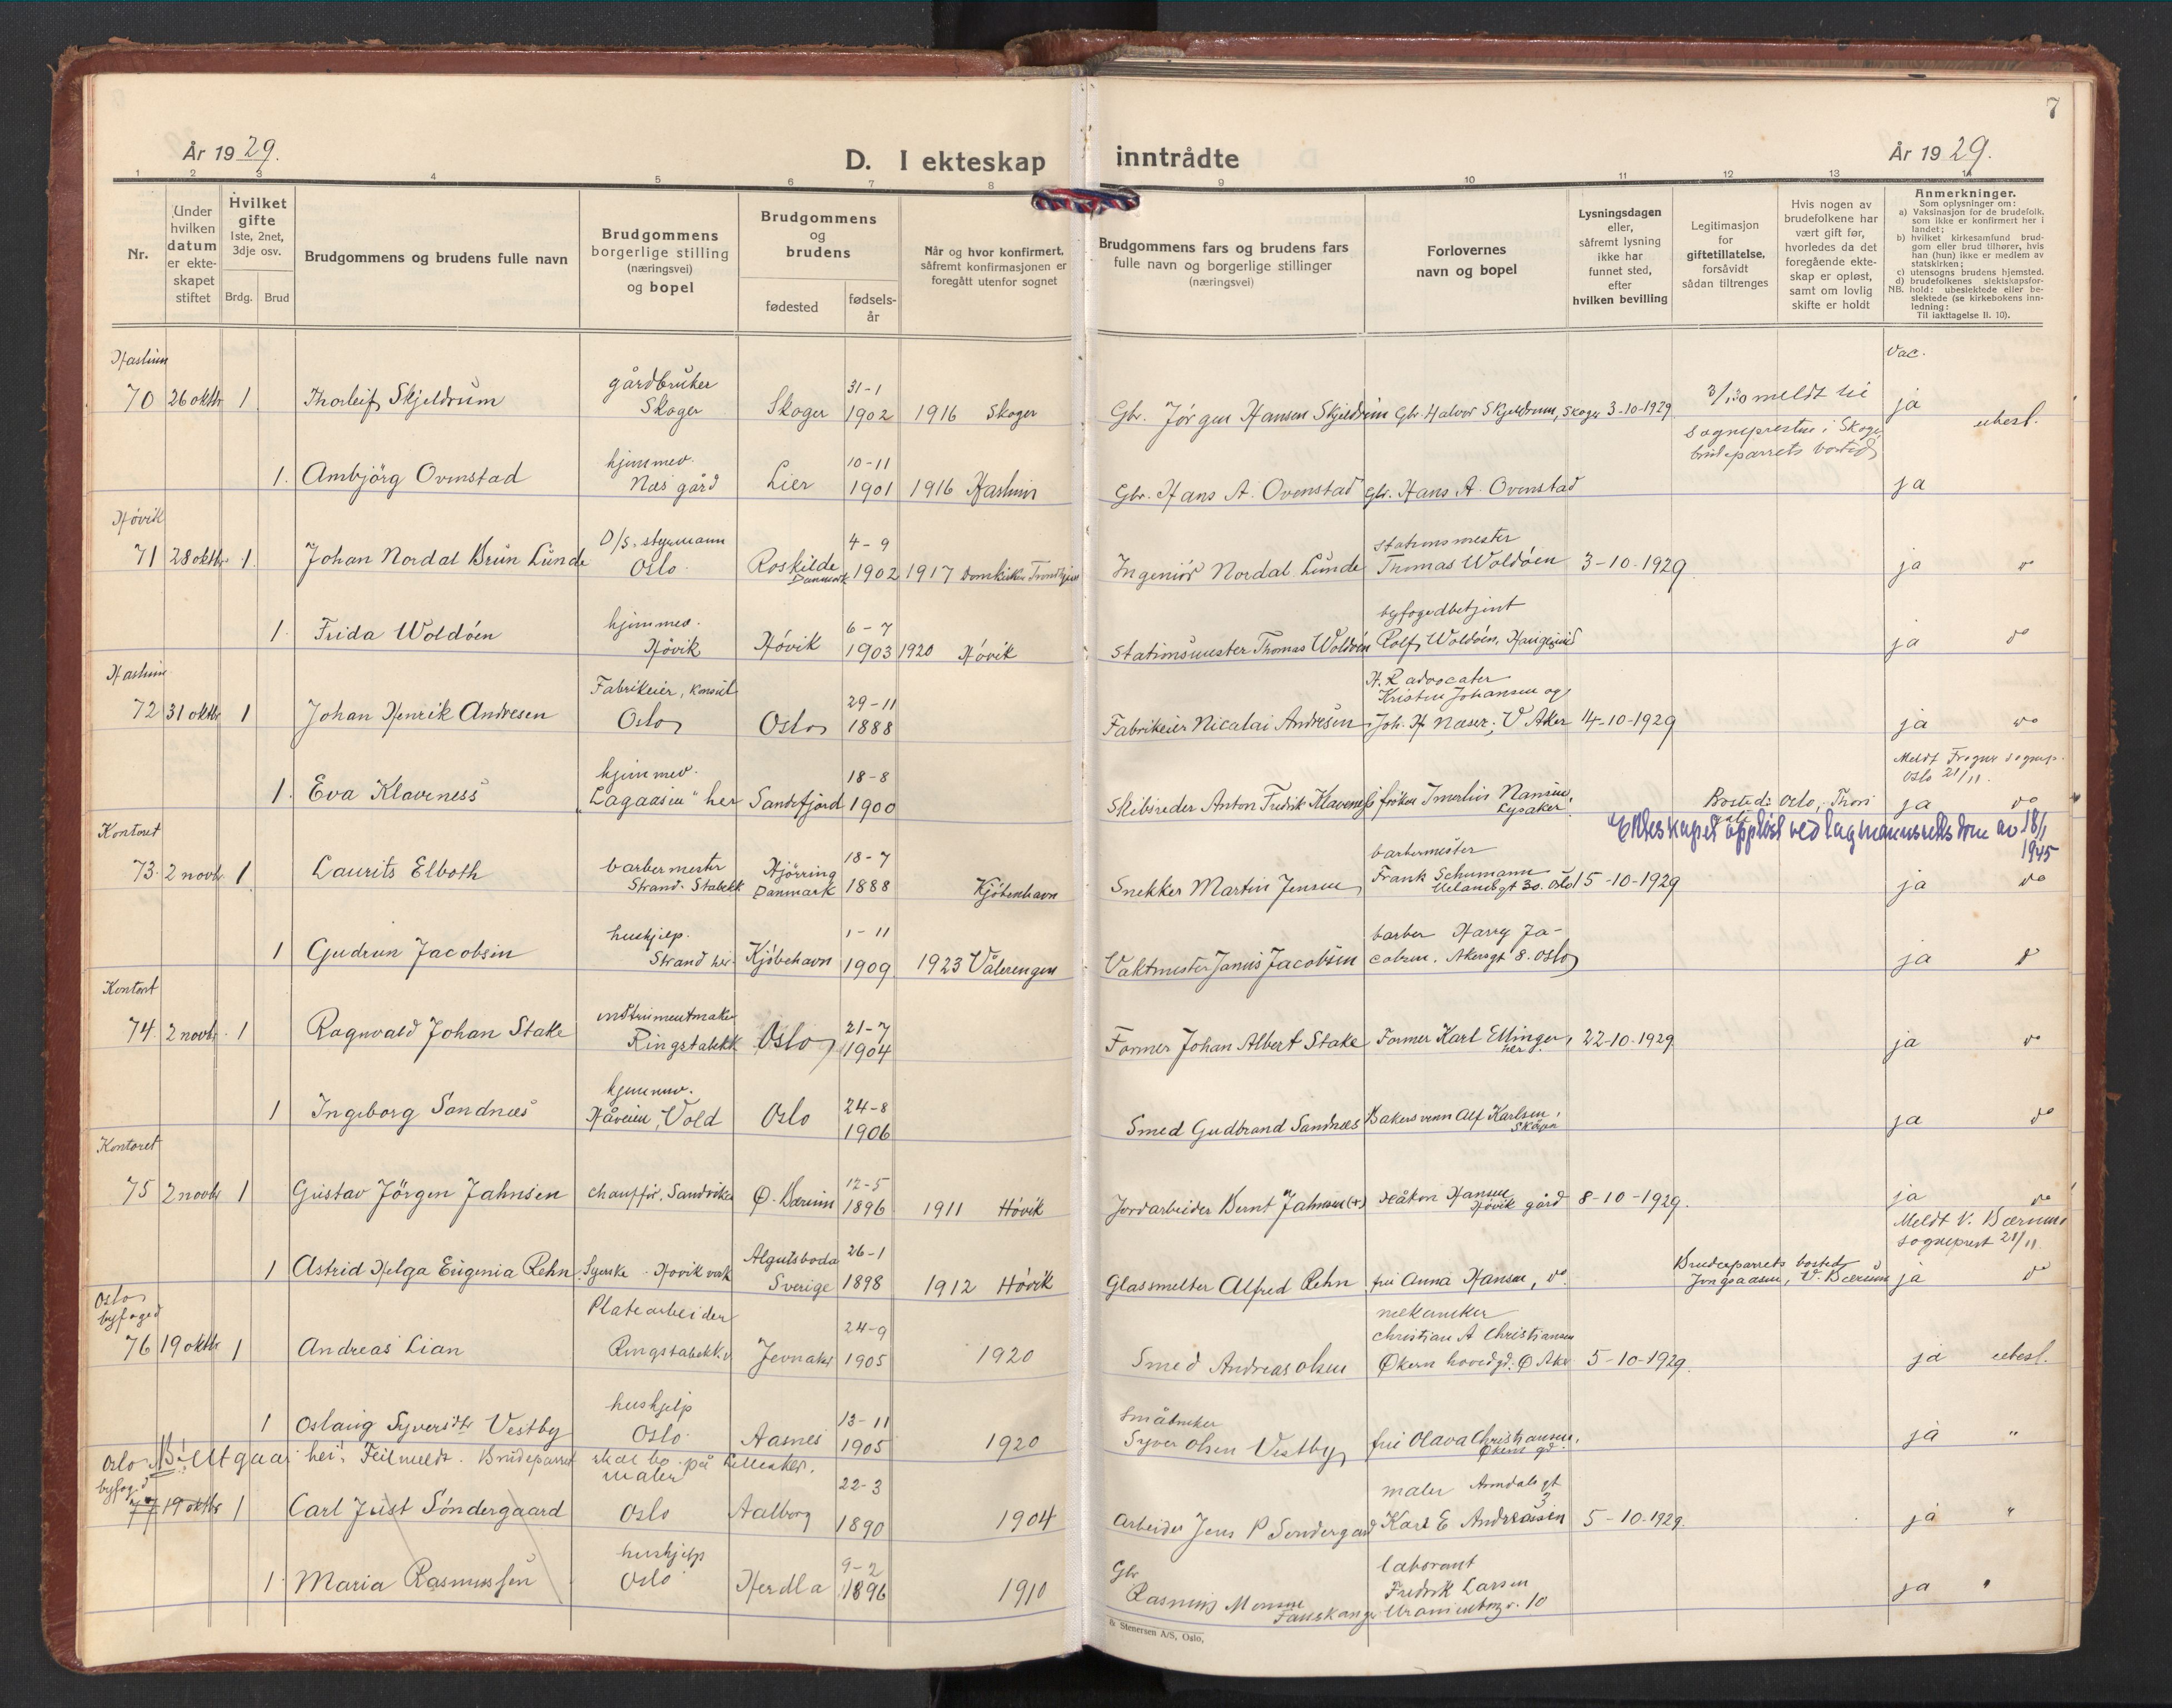 7
År 1929.
D. I ekteskap inntrådte
År 1929.
1 2 3 4 5 6 7 8 9 10 11 12 13 14
Nr.
Under hvilken datum er ekteskapet stiftet
Hvilket gifte 1ste, 2net, 3dje osv.
Brdg. Brud
Brudgommens og brudens fulle navn
Brudgommens borgerlige stilling (næringsvei) og bopel
Brudgommens og brudens
fødested fødselsår
Når og hvor konfirmert, såfremt konfirmasjonen er foregått utenfor sognet
Brudgommens fars og brudens fars fulle navn og borgerlige stillinger (næringsvei)
Forlovernes navn og bopel
Lysningsdagen eller, såfremt lysning ikke har funnet sted, efter hvilken bevilling
Legitimasjon for giftetillatelse, forsåvidt sådan tiltrenges
Hvis nogen av brudefolkene har vært gift før, hvorledes da det foregående ekteskap er opløst, samt om lovlig skifte er holdt
Anmerkninger.
Som oplysninger om:
a) Vaksinasjon for de brudefolk, som ikke er konfirmert her i landet;
b) hvilket kirkesamfund brudgom eller brud tilhører, hvis han (hun) ikke er medlem av statskirken;
c) utensogns brudens hjemsted.
d) brudefolkenes slektskapsforhold: ubeslektede eller beslektede (se kirkebokens innledning:
NB.
Til iakttagelse II. 10).
Vac.
Haslum
70 26 oktbr 1 Thorleif Skjeldrum gårdbruker Skoger Skoger 31-1 1902 1916 Skoger Gbr. Jørgen Hansen Skjeldrum Gbr. Halvor Skjeldrum, Skoger 3-10-1929 meldt til sognepresten i Skoger brudeparrets bosted ja ubesl.
1. Ambjörg Ovnstad hjemmev. Næs gård Lier 10-11 1901 1916 Haslum Gbr. Hans A. Ovenstad Gbr. Hans A. Ovenstad ja
Høvik
71 28 oktbr. 1. Johan Nordal Brun Lunde D/s. styrmann Oslo Roskilde Danmark 4-9 1902 1917 Domkirken Trondhjem Ingeniör Nordal Lunde Stationsmester Thomas Woldøen 3-10-1929 ja do
1. Frida Woldøen hjemmev. Høvik Høvik 6-7 1903 1920 Høvik Stationsmester Thomas Woldøen byfogedbetjent Rolf Woldøen, Haugesund ja do
Haslum
72 31 oktbr 1 Johan Henrik Andresen Fabrikeier, konsul Oslo Oslo 29-11 1888 Fabrikeier Nicolai Andresen H.R advocater Kristen Johansen og Joh. H Næser, V Aker 14-10-1929 ja do
1. Eva Klaveness hjemmev. "Lagaasen" her Sandefjord 18-8 1900 Skibsreder Anton Fredrik Klaveness frøken Imerlin Nansen, Lysaker. Bosted: Oslo, Meldt Frogner sognep. Oslo 21/11. ja do
Ekteskapet oppløst ved lagmannsrettsdom av 18/1 1945
Kontoret
73. 2 novbr 1 Laurits Elboth barbermester Strand. Stabekk Hjørring Danmark 18-7 1888 Kjøbenhavn Snekker Martin Jensen barbermester Frank Schumann Uelandsgt 30. Oslo 15-10-1929 ja do
1 Gudrun Jacobsen hushjelp. Strand her Kjøbehavn 1-11 1909 1923 Vålerengen Vaktmester Janus Jacobsen barber Harry Jacobsen. Akersgt 8. Oslo ja do
Kontoret
74. 2 novbr. 1 Ragnvald Johan Stake instrumentmaker Ringstabekk Oslo 21-7 1904 Former Johan Albert Stake Former Karl Ellinger, her. 22-10-1929 ja do
1 Ingeborg Sandnæs hjemmev. Håveien, Vold Oslo 24-8 1906 Smed Gudbrand Sandnæs Bakersvenn Alf Karlsen, Skøyen ja do
Kontoret
75 2 novbr 1 Gustav Jörgen Jahnsen chauffør, Sandvika Ø. Bærum 12-5 1896 1911 Høvik Jordarbeider Bernt Jahnsen (+) Håkon Hansen Høvik gård 8-10-1929. ja do
1 Astrid Helga Eugenia Rehn Syerske Høvik verk Algutsboda Sverige 26-1 1898 1912 Høvik Glassmelter Alfred Rehn fru Anna Hansen, do. Brudeparrets bosted Jongsaasen, V. Bærum Meldt V. Bærum sogneprest 21/11. ja do
Oslo byfoged
76 19 oktbr 1 Andreas Lian Platearbeider Ringstabekk Jevnaker 24-9 1905 1920 Smed Andreas Olsen mekaniker Christian A Christiansen Økern hovedgd. Ø Aker 5-10-1929. ja ubesl.
1 Oslaug Syversdtr Vestby hushjelp Oslo Aasnes 13-11 1905 1920 Småbruker Syver Olsen Vestby fru Olava Christiansen, Økern gd. ja "
NB! Utgaar her. Feilmeldt. Brudeparret skal bo på Lilleaker.
Oslo byfoged
77 19 oktbr 1 Carl Just Söndergaard maler Oslo Aalborg 22-3 1890 1904 Arbeider Jens P Sondergaard maler Arendalsgt 3 Karl E Andreassen 5-10-1929. ja "
1. Maria Rasmussen hushjelp Oslo Herdla 9-2 1896 1910 Gbr Rasmus Monsen Fauskanger laborant Fredrik Larsen Uranienborgv. 10 ja "
Stenersen A/S, Oslo,